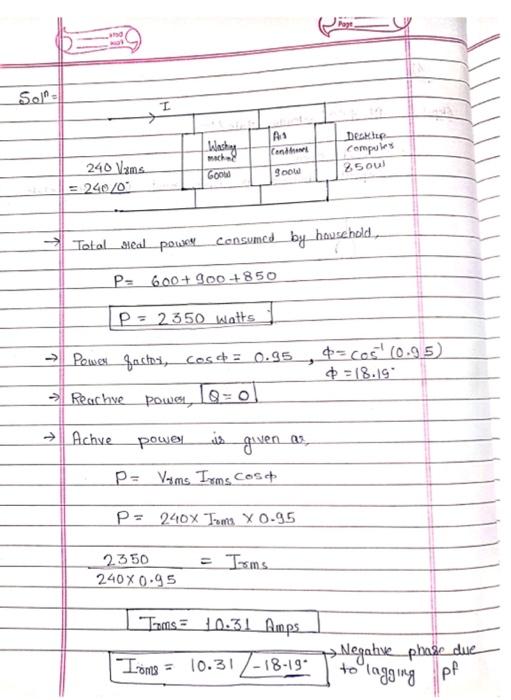 Page
Soln =
I
Washing machine 600W
Air Conditioners 900W
Desktop computer 850W
240 Vrms
= 240/0°
→ Total real power consumed by household,
P= 600+900+850
P = 2350 watts
→ Power factor, cosϕ = 0.95 , ϕ = cos⁻¹ (0.95)
ϕ = 18.19°
→ Reactive power, Q = 0
→ Active power is given as,
P= Vrms Irms cosϕ
P= 240 × Irms × 0.95
2350 / 240×0.95 = Irms
Irms = 10.31 Amps
Irms = 10.31 /-18.19° → Negative phase due
to lagging pf